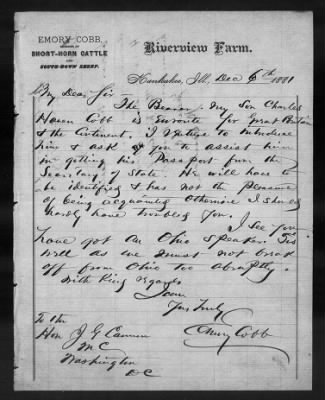 EMORY COBB,
BREEDER OF
SHORT-HORN CATTLE
AND
SOUTH-DOWN SHEEP.
Riverview Farm.
Kankakee, Ill. Dec 6th 1881
My Dear Sir
The Bearer my Son Charles
Hason Cobb is enroute for Great Britain
& the Continent. I venture to introduce
him & ask of you to assist him
in getting his Passport from the
Secretary of State. He will have to
be identified & has not the pleasure
of being acquainted otherwise I should
hardly have troubled you.
I see you
have got an Ohio Speaker. Tis
well as we must not break
off from Ohio too abruptly.
With Kind regards
I am
Yrs Truly
Emory Cobb
To the
Hon J G Cannon
MC
Washington
DC